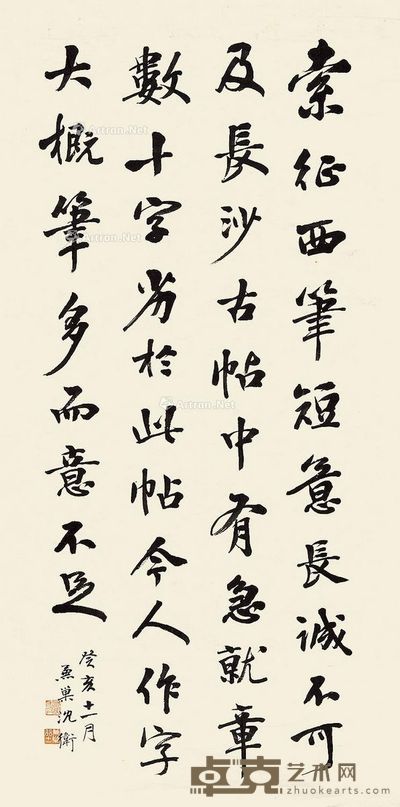 索征西筆短意長誠不可
及長沙古帖中有急就章
數十字劣於此帖今人作字
大概筆多而意不足
癸亥十一月
兼巢沈衛
Artron.Net
卓克艺术网
zhuokearts.com